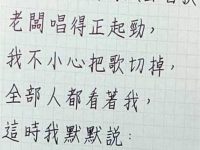 老闆唱得正起勁，
我不小心把歌切掉，
全部人都看著我，
這時我默默說：